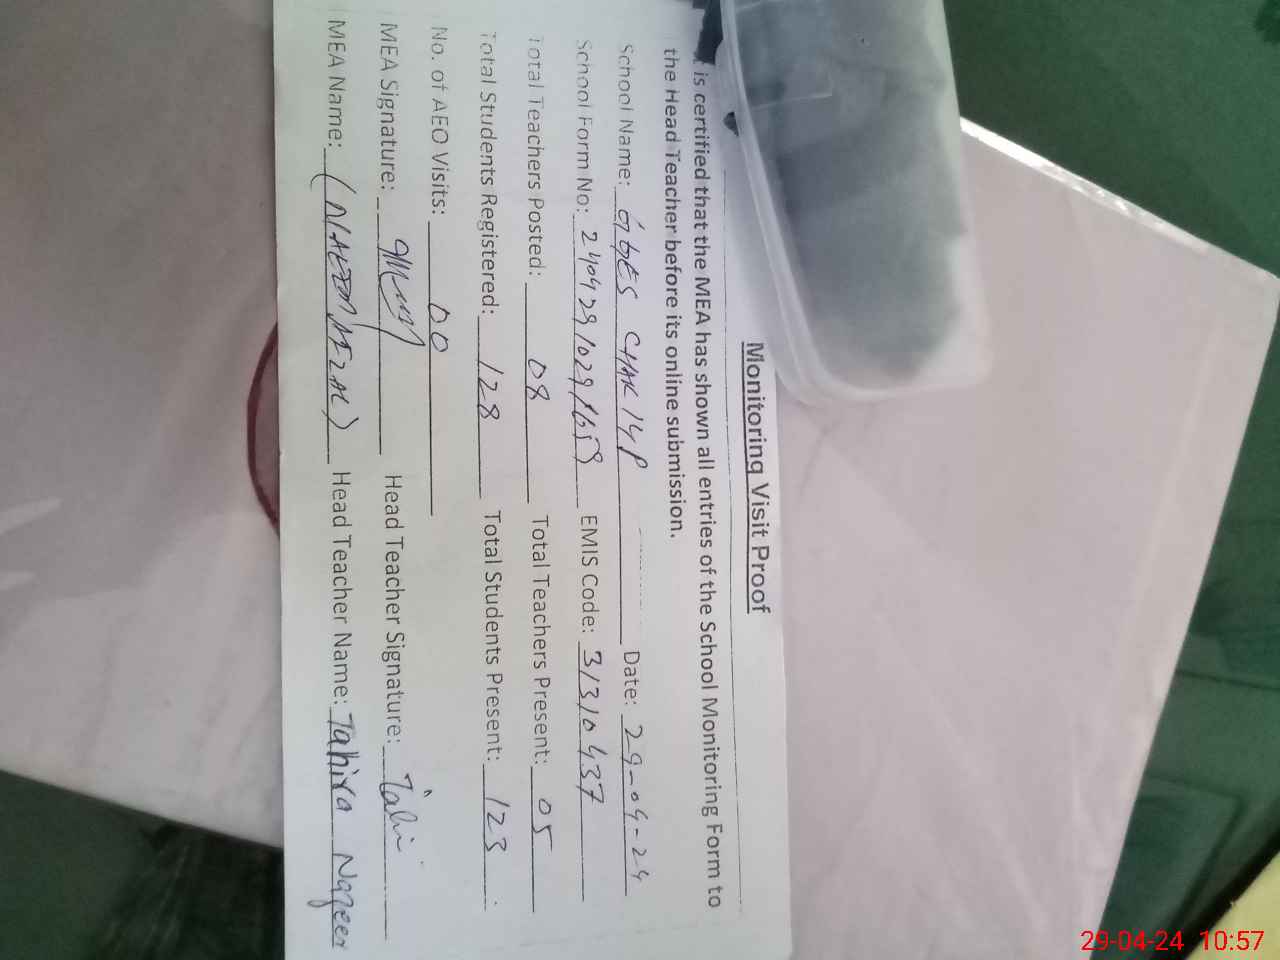 Monitoring Visit Proof
is certified that the MEA has shown all entries of the School Monitoring Form to
the Head Teacher before its online submission.
School Name: GGES CHAK 14P Date: 29-04-24
School Form No: EMIS Code: 31310437
Total Teachers Posted: 08 Total Teachers Present: 05
Total Students Registered: 128 Total Students Present: 123
No. of AEO Visits: 00
MEA Signature: Head Teacher Signature: Tahi
MEA Name: Head Teacher Name: Tahira Naqeer
29-04-24 10:57